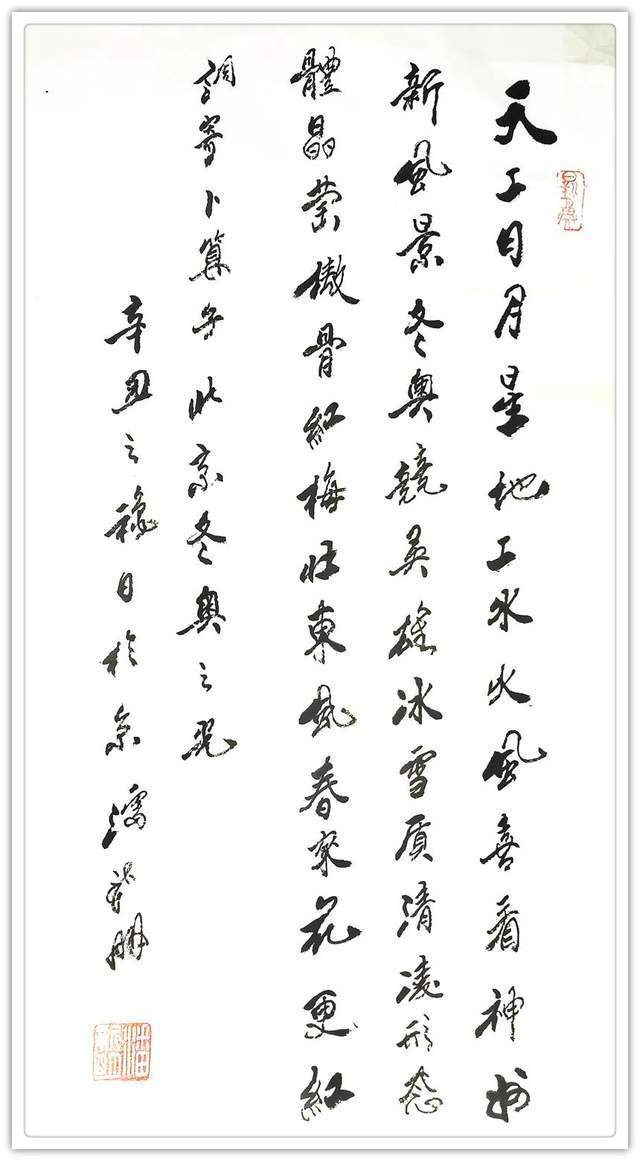 天上日月星地上水火風喜看神州
新風景冬奥競英雄冰雪质清凌形态
體晶莹傲骨紅梅旺東風春來花更紅
調寄卜算子北京冬奥之
辛丑之日於京